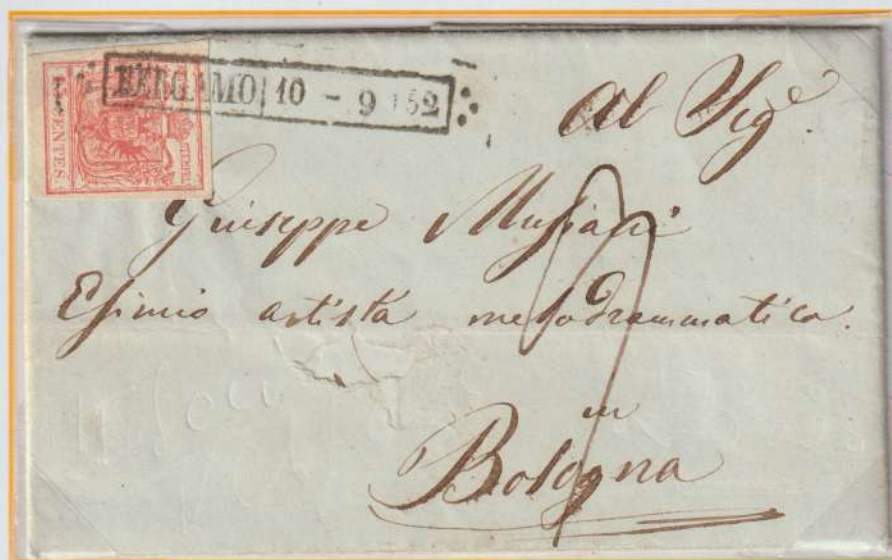 BERGAMO 10 - 9 152
CENTES.
Al Sig.e
Giuseppe Musiani
Esimio artista melodrammatico.
in
Bologna